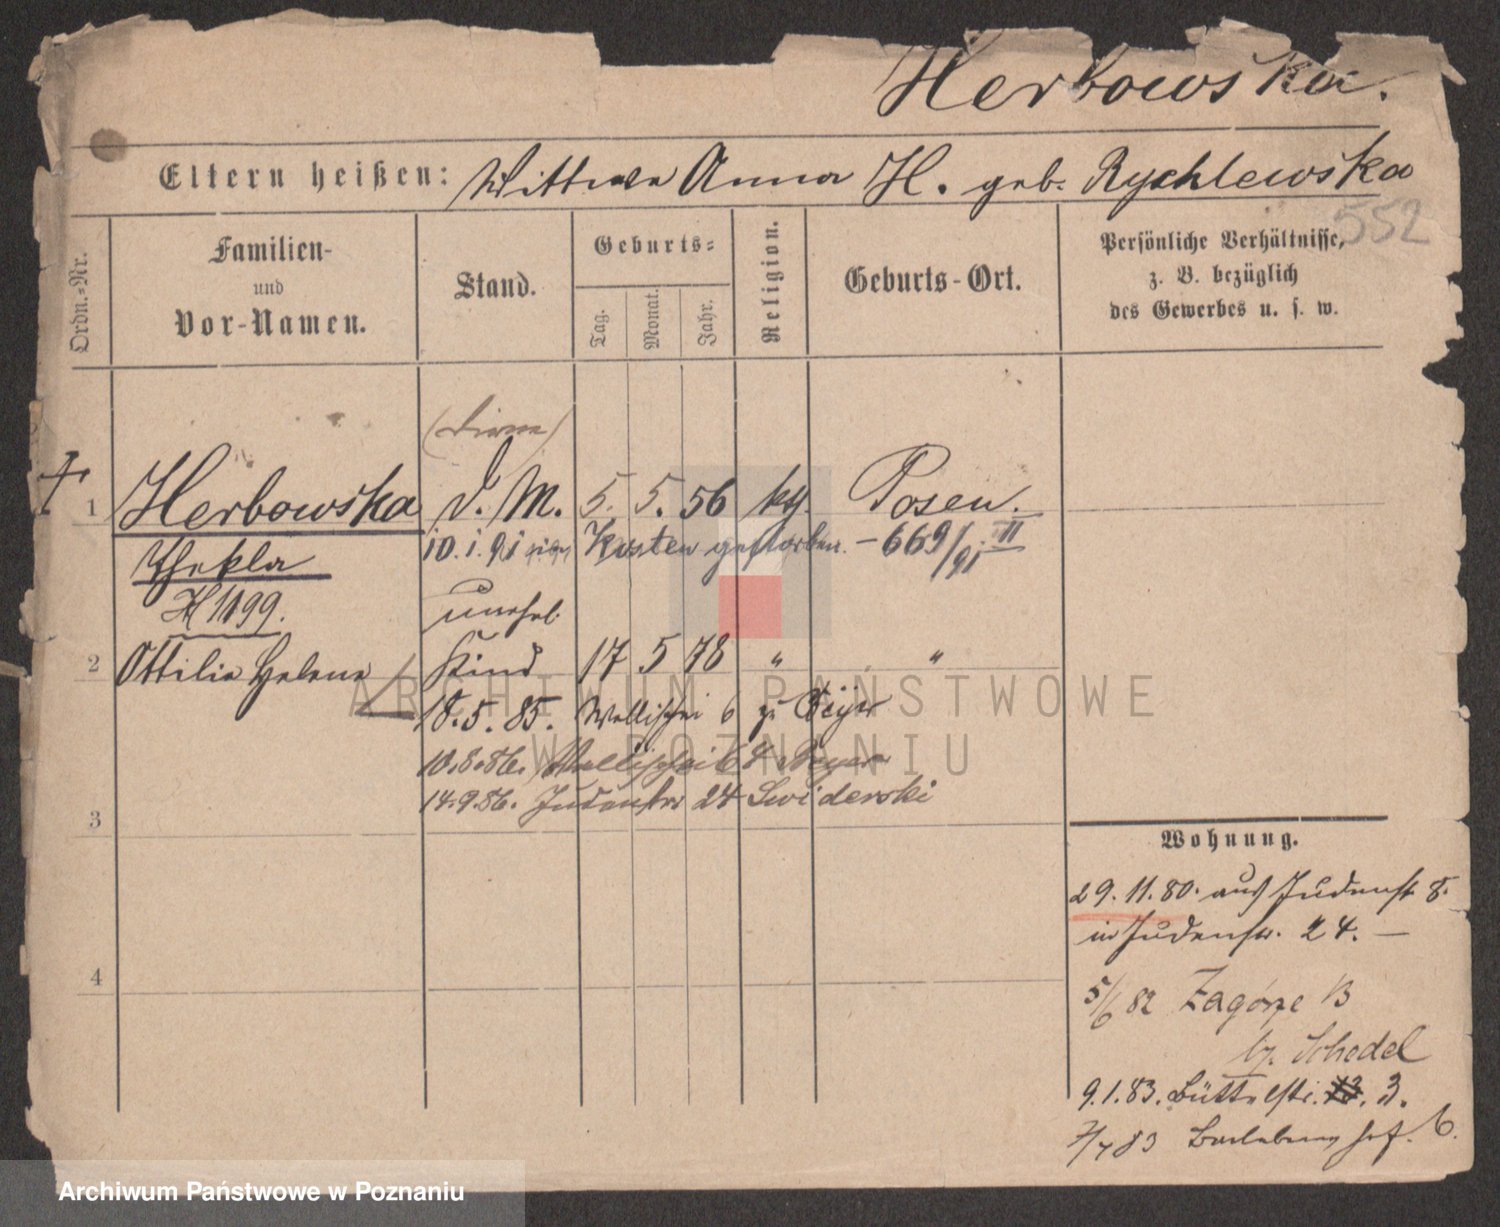 Herbowska.
Eltern heißen: Wittwe Anna H. geb. Rychlewska
552
Ordn.-Nr.
Familien-
und
Vor-Namen.
Stand.
Geburts-
Tag.
Monat.
Jahr.
Religion.
Geburts-Ort.
Persönliche Verhältnisse,
z. B. bezüglich
des Gewerbes u. s. w.
(Dirne)
1 Herbowska d. M. 5. 5. 56 kth. Posen.
10. 1. 91 Kosten gestorben. – 669/91 II
Thekla
H 1199.
unehel.
2 Ottilie Helene Kind 17 5 78 " "
18. 5. 85. Wallischei 6 zu
10.8.86. Wallischei 64 Beyer
14.9.86. Judenstr 24 Swiderski
3
Wohnung.
29. 11. 80. aus Judenstr 8.
in Judenstr. 24. –
4
5/6 82 Zagórze 13
bz. Schedel
9.1.83. Büttelstr. 13. 3.
7/7 83 6.
ARCHIWUM PAŃSTWOWE
W POZNANIU
Archiwum Państwowe w Poznaniu